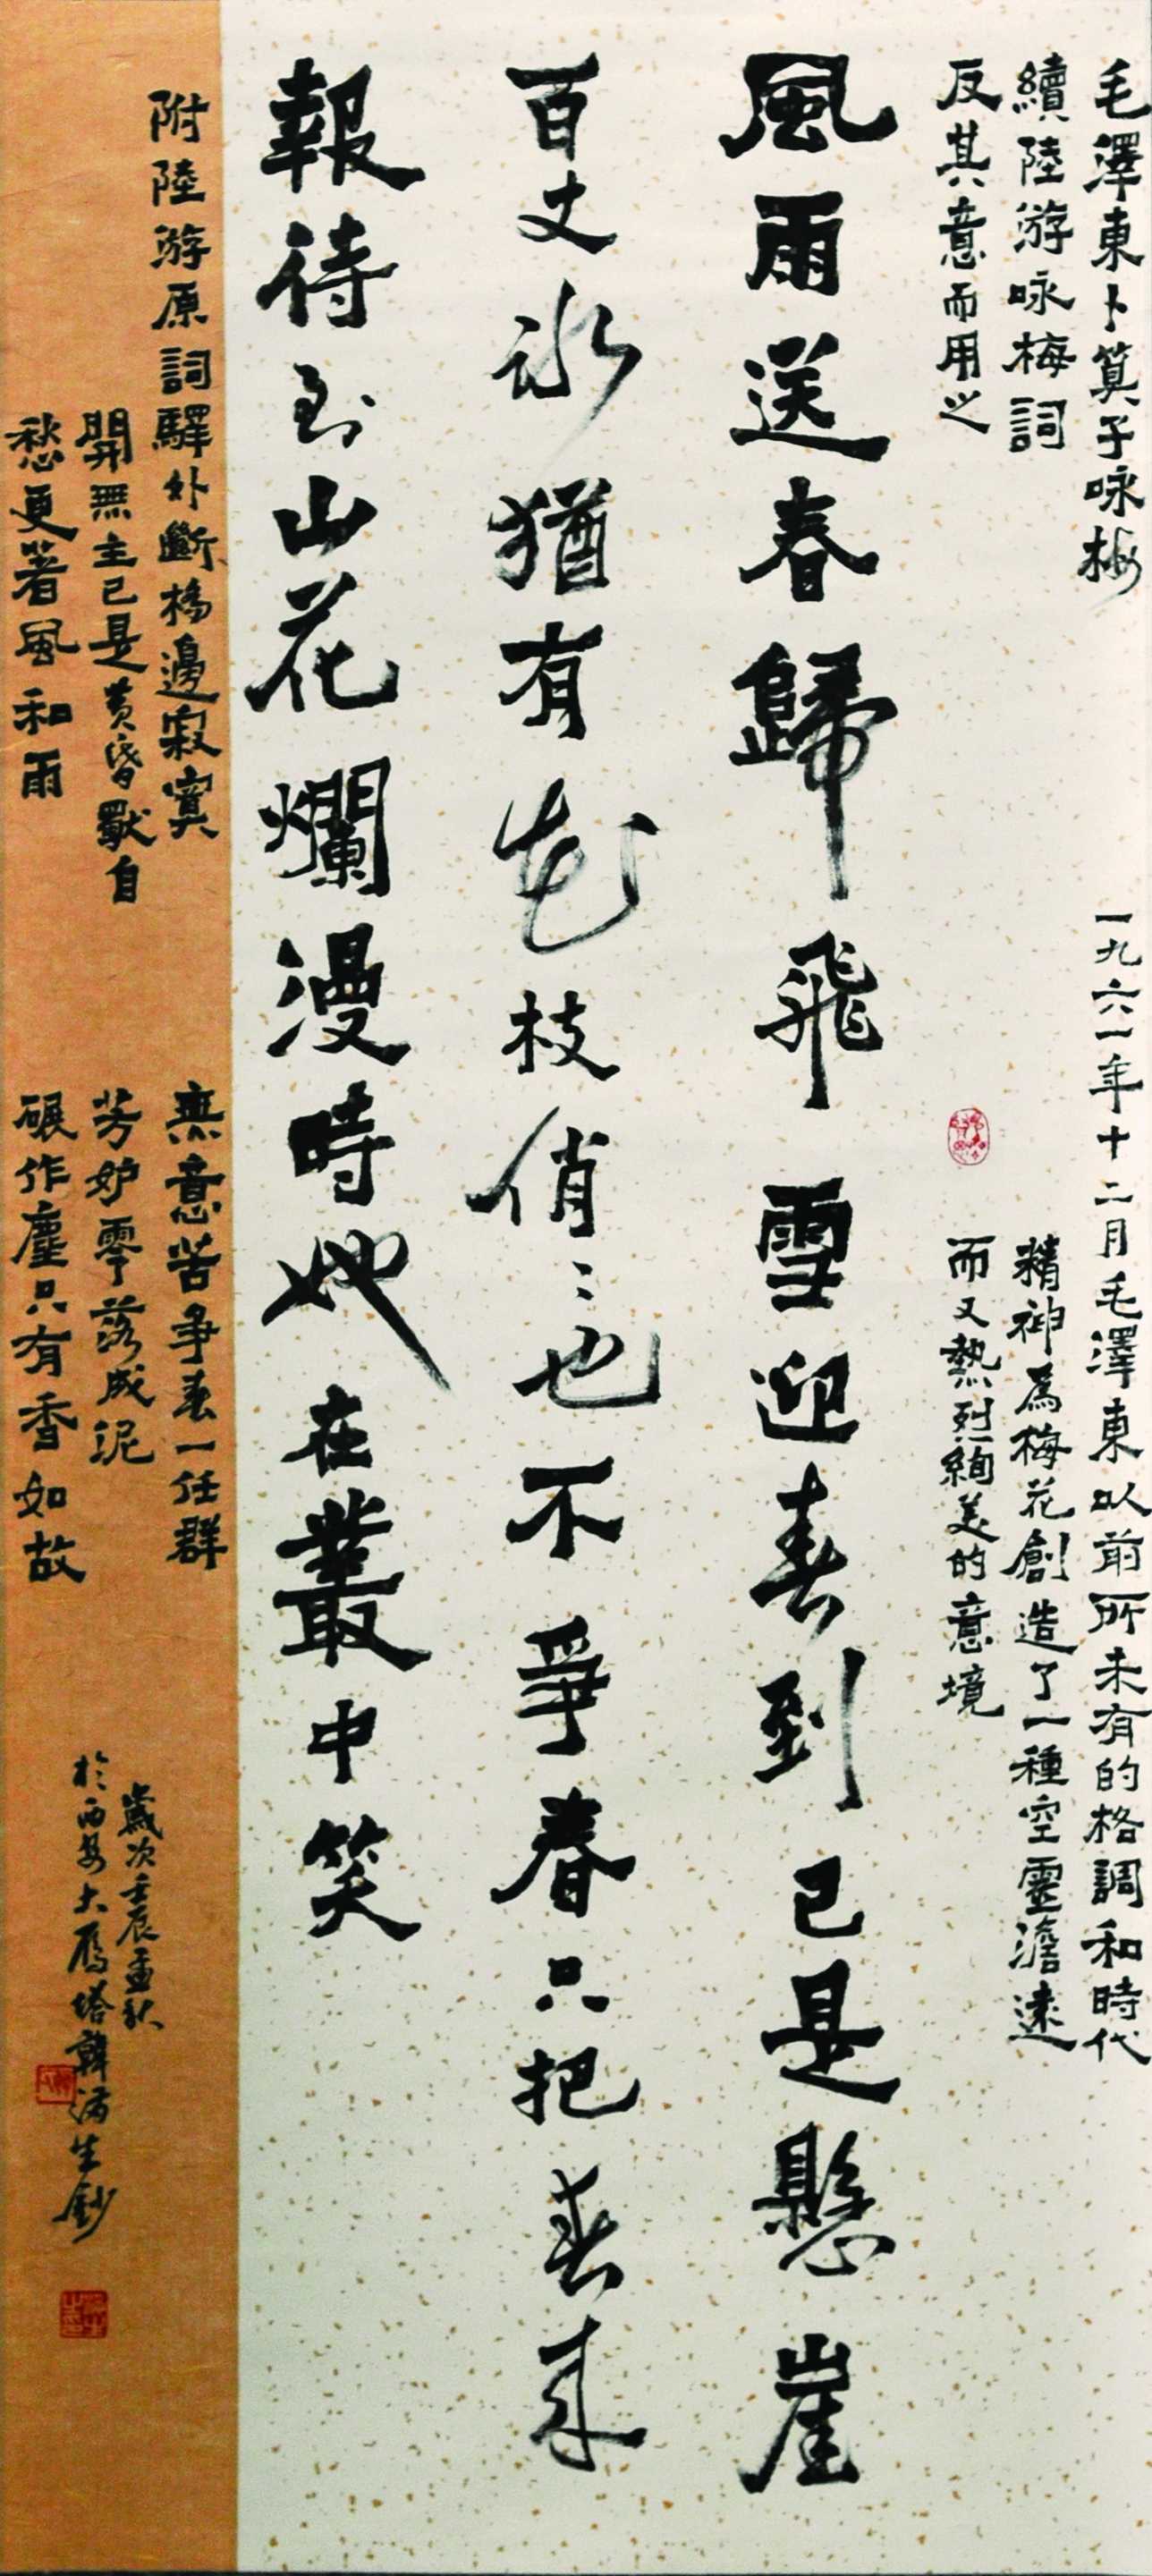 毛澤東卜算子咏梅
續陸游咏梅詞
反其意而用之
一九六一年十二月毛澤東以前所未有的格調和時代
精神爲梅花創造了一種空靈澹遠
而又熱烈絢美的意境
風雨送春歸飛雪迎春到已是懸崖
百丈冰猶有花枝俏〻也不爭春只把春來
報待到山花爛漫時她在叢中笑
附陸游原詞驛外斷橋邊寂寞
開無主已是黃昏獨自
愁更著風和雨
無意苦爭春一任群
芳妒零落成泥
碾作塵只有香如故
歲次壬辰孟秋
於西安大雁塔韓滿生鈔